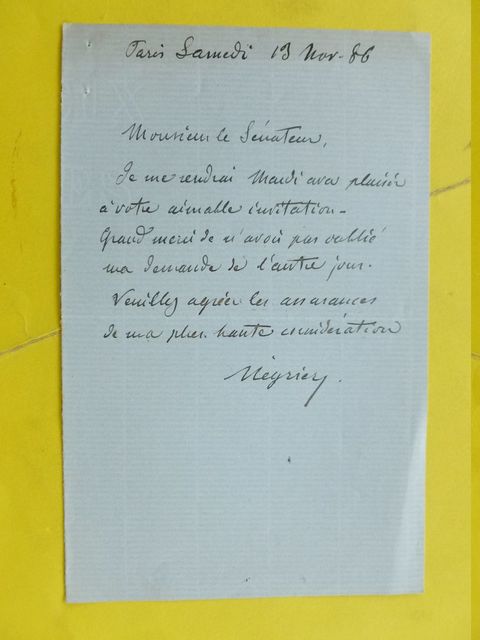 Paris Samedi 13 Nov. 86
Monsieur le Sénateur,
Je me rendrai Mardi avec plaisir
à votre aimable invitation -
Grand merci de n'avoir pas oublié
ma demande de l'autre jour.
Veuillez agréer les assurances
de ma plus haute considération
Négrier.